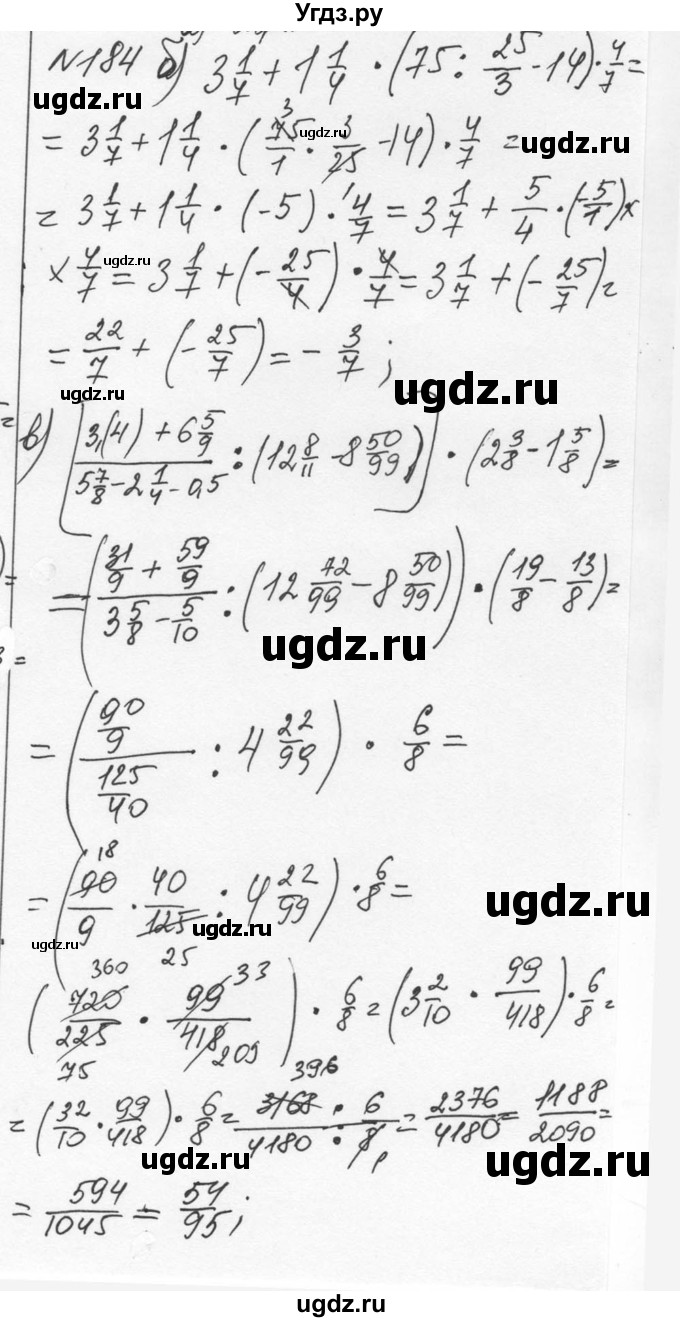 Угдз.ру
N184 б) 3 1/7 + 1 1/4 · (75 : 25/3 - 14) · 4/7 =
ugdz.ru
= 3 1/7 + 1 1/4 · (75/1 · 3/25 - 14) · 4/7 =
3
ugdz.ru
ugdz.ru
= 3 1/7 + 1 1/4 · (-5) · 4/7 = 3 1/7 + 5/4 · (-5/1) ×
× 4/7 = 3 1/7 + (-25/4) · 4/7 = 3 1/7 + (-25/7) =
ugdz.ru
= 22/7 + (-25/7) = - 3/7 ;
ugdz.ru
ugdz.ru
в) [(3,(4) + 6 5/9)/(5 7/8 - 2 1/4 - 0,5) : (12 8/11 - 8 50/99)] · (2 3/8 - 1 5/8) =
= ((31/9 + 59/9)/(3 5/8 - 5/10) : (12 72/99 - 8 50/99)) · (19/8 - 13/8) =
ugdz.ru
= ((90/9)/(125/40) : 4 22/99) · 6/8 =
18
= (90/9 · 40/125 : 4 22/99) · 6/8 =
25
ugdz.ru
ugdz.ru
ugdz.ru
360 33
(720/225 · 99/418) · 6/8 = (3 2/10 · 99/418) · 6/8 =
75 209
396
= (32/10 · 99/418) · 6/8 = 3168 · 6/4180 : 8 = 2376/4180 = 1188/2090 =
1
ugdz.ru
ugdz.ru
= 594/1045 = 54/95 ;
ugdz.ru
ugdz.ru